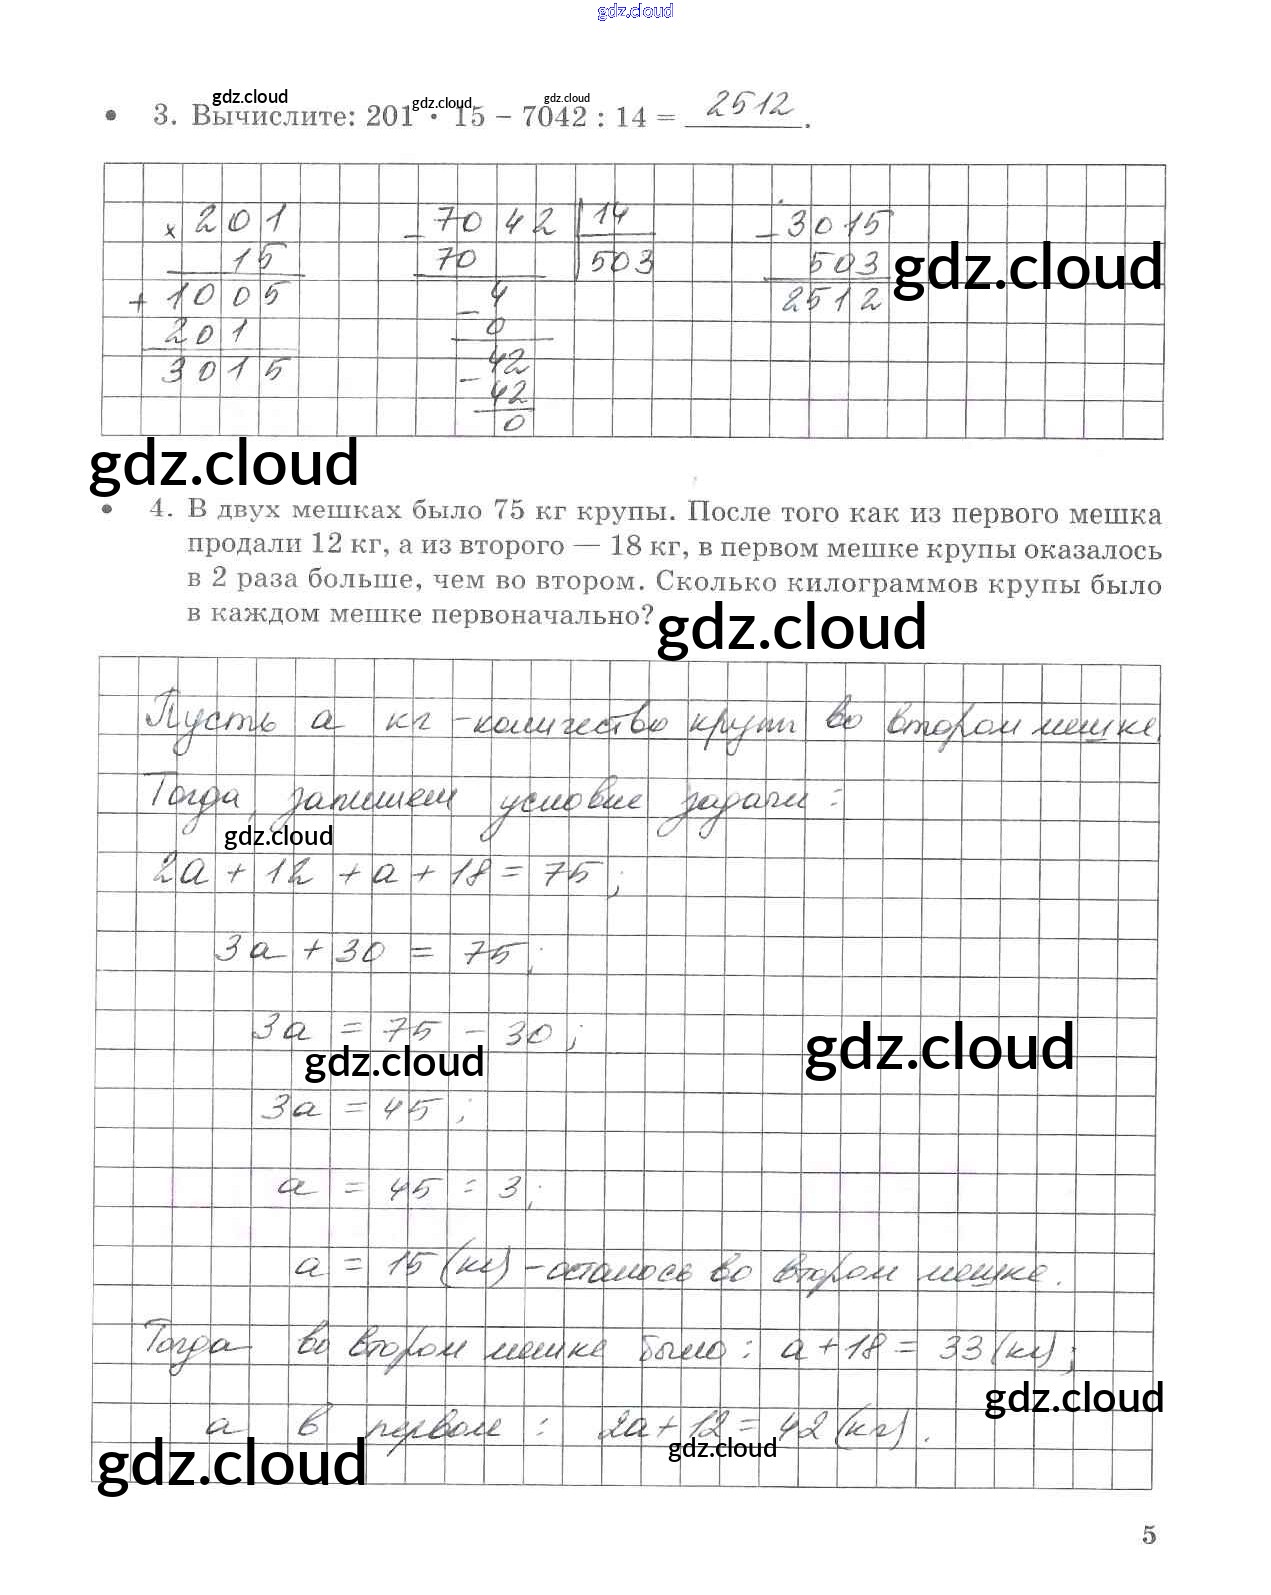 gdz.cloud
gdz.cloud
gdz.cloud
gdz.cloud
• 3. Вычислите: 201 · 15 − 7042 : 14 = 2512.
× 201 − 7042 | 14 − 3015
15 70 503 503
gdz.cloud
+ 1005 − 4 2512
201 0
3015 − 42
42
0
gdz.cloud
• 4. В двух мешках было 75 кг крупы. После того как из первого мешка
продали 12 кг, а из второго — 18 кг, в первом мешке крупы оказалось
в 2 раза больше, чем во втором. Сколько килограммов крупы было
в каждом мешке первоначально?
gdz.cloud
Пусть а кг - количество крупы во втором мешке.
Тогда, запишем условие задачи:
gdz.cloud
2а + 12 + а + 18 = 75;
3а + 30 = 75;
3а = 75 − 30;
gdz.cloud
gdz.cloud
3а = 45;
а = 45 : 3;
а = 15 (кг) - осталось во втором мешке.
Тогда во втором мешке было: а + 18 = 33 (кг);
gdz.cloud
а в первом: 2а + 12 = 42 (кг).
gdz.cloud
gdz.cloud
5